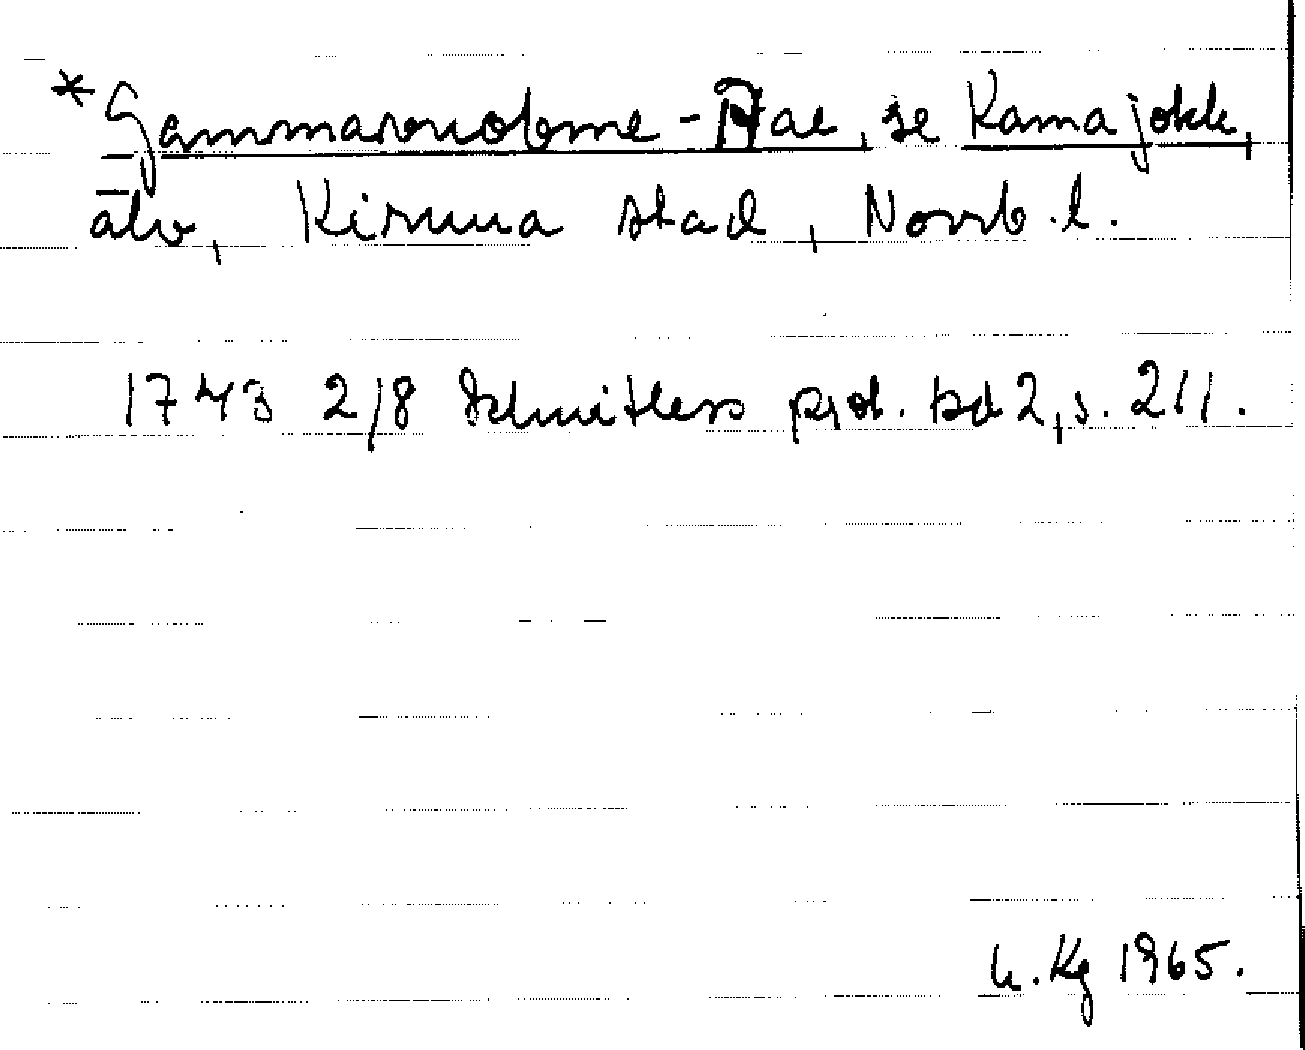 *Gammavuobme-Aae, se Kamajokk,
älv, Kiruna stad, Norrb.l.
1743 2/8 Schnitlers prot. bd 2, s. 211.
U. Kg 1965.